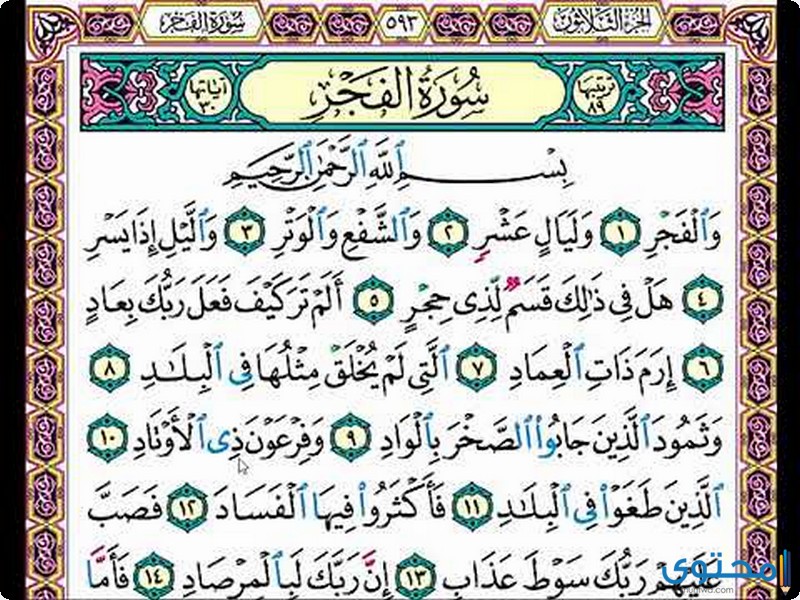 سُورَةُ الفَجْرِ ٥٩٣ الجُزْءُ الثَّلَاثُونَ
ترتيبها ٨٩ سُورَةُ الفَجْرِ آياتها ٣٠
بِسْمِ ٱللَّهِ ٱلرَّحْمَٰنِ ٱلرَّحِيمِ
وَٱلْفَجْرِ ١ وَلَيَالٍ عَشْرٍ ٢ وَٱلشَّفْعِ وَٱلْوَتْرِ ٣ وَٱلَّيْلِ إِذَا يَسْرِ
٤ هَلْ فِى ذَٰلِكَ قَسَمٌ لِّذِى حِجْرٍ ٥ أَلَمْ تَرَ كَيْفَ فَعَلَ رَبُّكَ بِعَادٍ
٦ إِرَمَ ذَاتِ ٱلْعِمَادِ ٧ ٱلَّتِى لَمْ يُخْلَقْ مِثْلُهَا فِى ٱلْبِلَٰدِ ٨
وَثَمُودَ ٱلَّذِينَ جَابُوا۟ ٱلصَّخْرَ بِٱلْوَادِ ٩ وَفِرْعَوْنَ ذِى ٱلْأَوْتَادِ ١٠
ٱلَّذِينَ طَغَوْا۟ فِى ٱلْبِلَٰدِ ١١ فَأَكْثَرُوا۟ فِيهَا ٱلْفَسَادَ ١٢ فَصَبَّ
عَلَيْهِمْ رَبُّكَ سَوْطَ عَذَابٍ ١٣ إِنَّ رَبَّكَ لَبِٱلْمِرْصَادِ ١٤ فَأَمَّا
محتوى